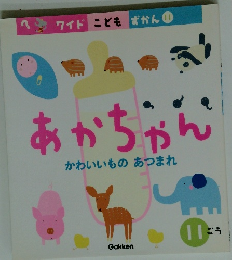 ワイド こども ずかん 11
あかちゃん
かわいいもの あつまれ
Gakken
11ごう